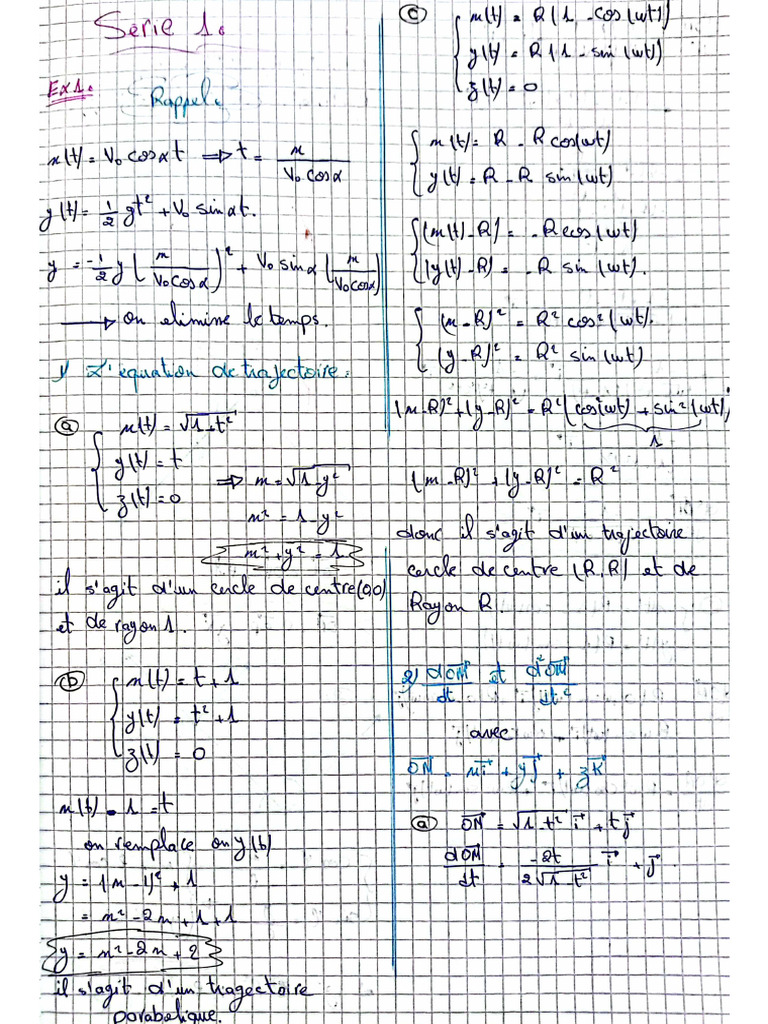 Serie 1.
Ex1.
Rappel.
x(t) = V₀ cosα t ⟹ t = x / V₀ cosα
y(t) = 1/2 gt² + V₀ sinαt.
y = -1/2 y (x / V₀ cosα)² + V₀ sinα (x / V₀ cosα)
⟶ on elimine le temps.
1/ L'equation de trajectoire:
ⓐ
{ x(t) = √1-t²
y(t) = t
z(t) = 0
⟹ x = √1-y²
x² = 1-y²
x² + y² = 1
il s'agit d'un cercle de centre (0,0)
et de rayon 1.
ⓑ { x(t) = t + 1
y(t) = t² + 1
z(t) = 0
x(t) - 1 = t
on remplace on y(t)
y = (x - 1)² + 1
= x² - 2x + 1 + 1
y = x² - 2x + 2
il s'agit d'un tragectoire
parabelique.
ⓒ { x(t) = R(1 - cos(wt))
y(t) = R(1 - sin(wt))
z(t) = 0
{ x(t) = R - R cos(wt)
y(t) = R - R sin(wt)
{ (x(t) - R) = - R cos(wt)
(y(t) - R) = - R sin(wt).
{ (x - R)² = R² cos²(wt).
(y - R)² = R² sin(wt)
(x - R)² + (y - R)² = R² (cos²(wt) + sin²(wt))
1
(x - R)² + (y - R)² = R²
donc il s'agit d'un trajectoire
cercle de centre (R, R) et de
Rayon R.
2) dOM⃗ / dt et d²OM⃗ / dt²
avec
OM⃗ = xi⃗ + yj⃗ + zk⃗
ⓐ OM⃗ = √1-t² i⃗ + tj⃗
dOM⃗ / dt = -2t / 2√1-t² i⃗ + j⃗